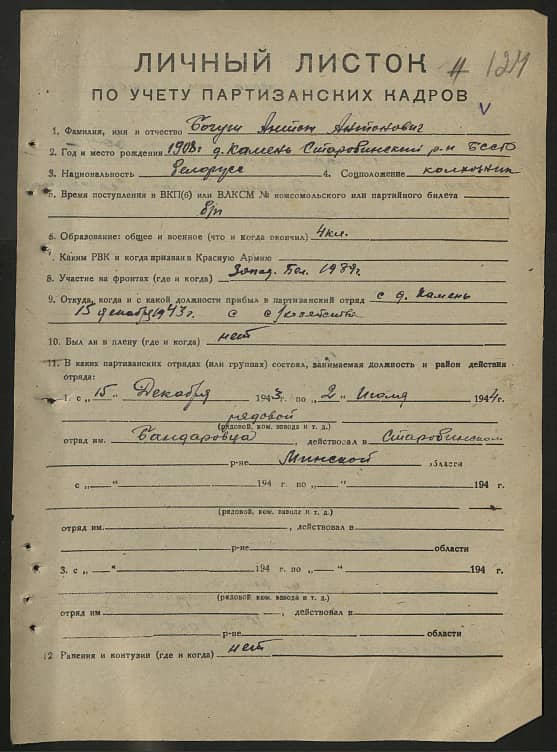 ЛИЧНЫЙ ЛИСТОК
ПО УЧЕТУ ПАРТИЗАНСКИХ КАДРОВ
1. Фамилия, имя и отчество Богуш Антон Антонович
2. Год и место рождения 1908 г д. Камень Старобинский р-н БССР
3. Национальность Белорус 4. Соцположение колхозник
5. Время поступления в ВКП(б) или ВЛКСМ № комсомольского или партийного билета
б/п
6. Образование: общее и военное (что и когда окончил) 4 кл.
7. Каким РВК и когда призван в Красную Армию
8. Участие на фронтах (где и когда) Запад. Бел. 1939 г.
9. Откуда, когда и с какой должности прибыл в партизанский отряд с д. Камень
15 декабря 1943 г. с
10. Был ли в плену (где и когда) нет
11. В каких партизанских отрядах (или группах) состоял, занимаемая должность и район действия
отряда:
1. с „15" Декабря 1943 г. по „2" Июля 1944 г.
рядовой
(рядовой, ком. взвода и т. д.)
отряд им. , действовал в Старобинском
р-не Минской области
с „ " 194 г. по „ " 194 г.
(рядовой, ком. взвода и т. д.)
отряд им. , действовал в
р-не области
3. с „ " 194 г. по „ " 194 г.
(рядовой, ком. взвода и т. д.)
отряд им , действовал в
р-не области
12 Ранения и контузии (где и когда) нет